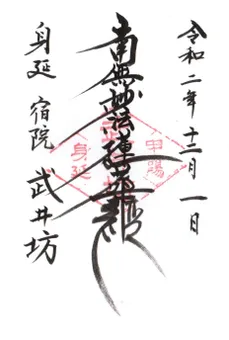 令和二年十二月一日
南無妙法蓮華経
甲陽
身延
身延 宿院 武井坊